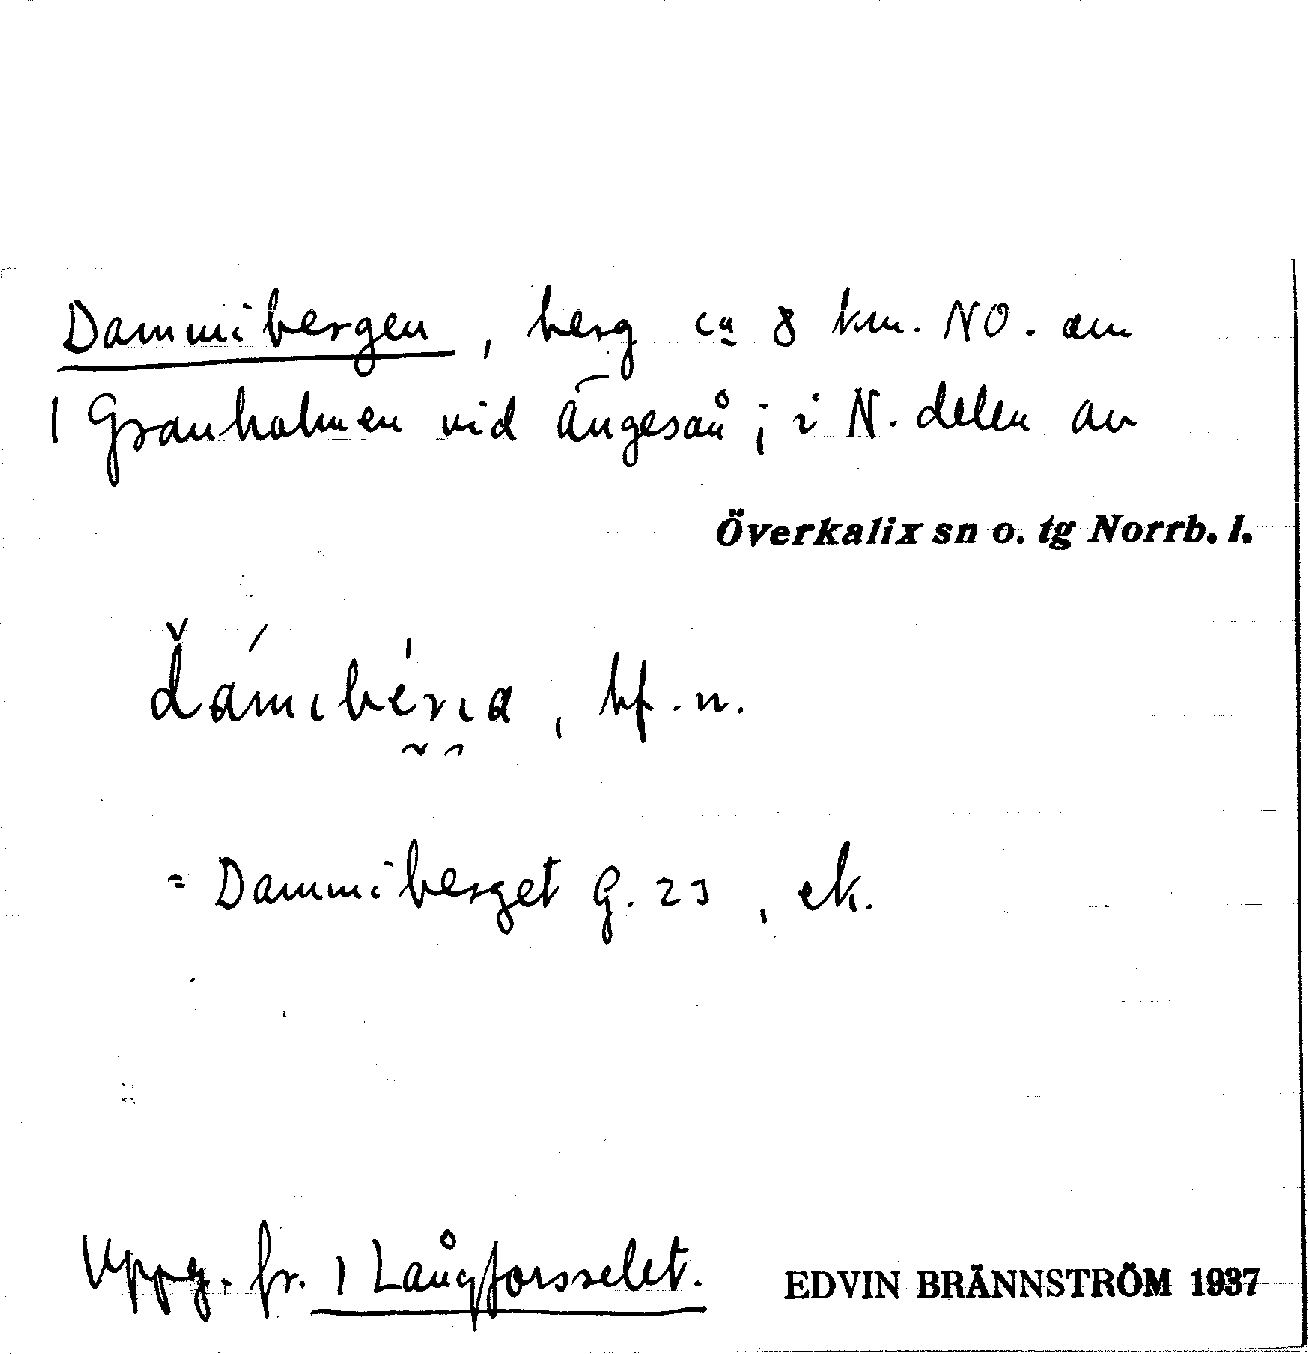 Dammibergen, berg ca 8 km. NO. om
1 Granholmen vid Ängesån; i N. delen av
Överkalix sn o. tg Norrb. l.
bf. n.
= Dammiberget G. 23, ek.
Uppg. fr. 1 Långforsselet.
EDVIN BRÄNNSTRÖM 1937